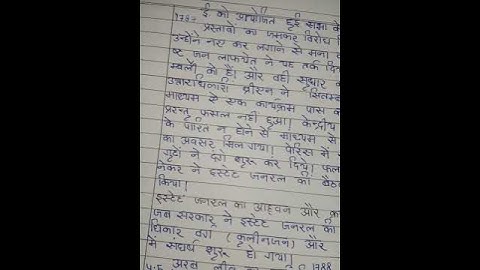 ई को आयोजित हुई सभा के
1787 प्रस्तावों का जमकर विरोध
उन्होंने नए कर लगाने से मना
जन लाफायेत ने यह तर्क दि
को है। और वही सुधार
उत्तराधिकारी ब्रीएन ने सितम्ब
माध्यम से एक कार्यक्रम पास क
प्रस्तु फसल नहीं हुआ। केन्द्रीय
के पारित न होने से माध्यम से
का अवसर मिल गया। पेरिस में
गुटों ने दंगे शुरू कर दिये। फल
नेकर ने इस्टेट जनरल की बैठ
किया।
इस्टेट जनरल का आह्वान और
जब सरकार ने इस्टेट जनरल की
धिकार वर्ग (कुलीनजन) और
में संघर्ष शुरू हो गया।
1788